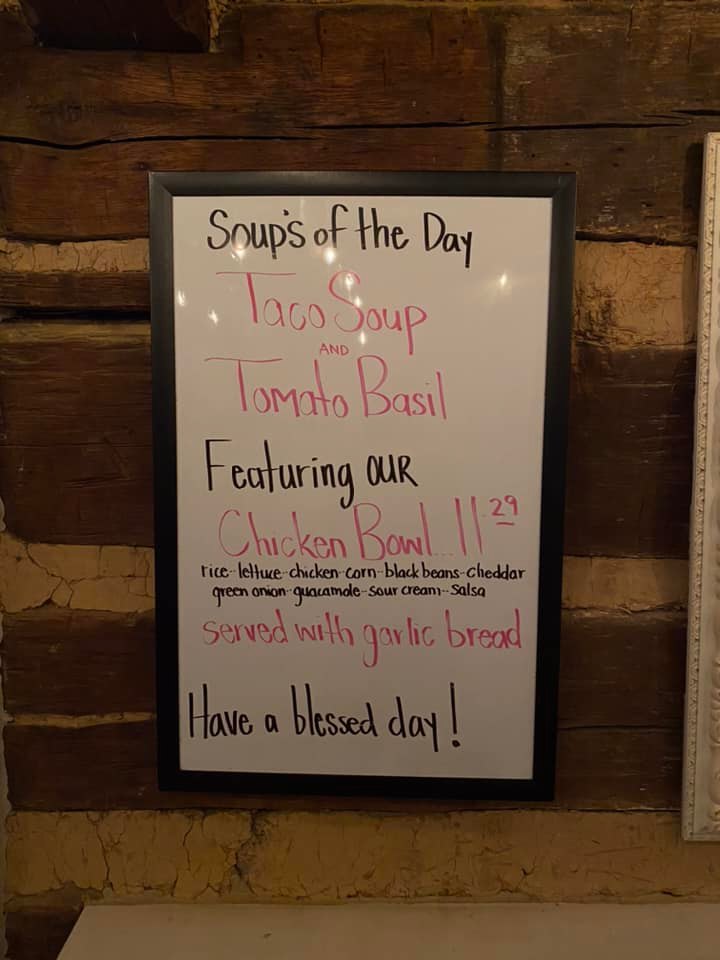 Soup's of the Day
Taco Soup
AND
Tomato Basil
Featuring OUR
Chicken Bowl... 11 29
rice--lettuce--chicken--corn--black beans--Cheddar
green onion--guacamole--sour cream--Salsa
served with garlic bread
Have a blessed day!